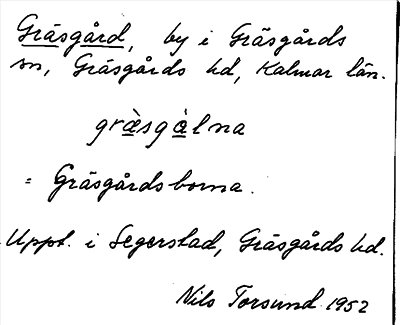 Gräsgård, by i Gräsgårds
sn, Gräsgårds hd, Kalmar län.
græ̀sgàlna
= Gräsgårdsborna.
Uppt. i Segerstad, Gräsgårds hd.
Nils Torsund 1952